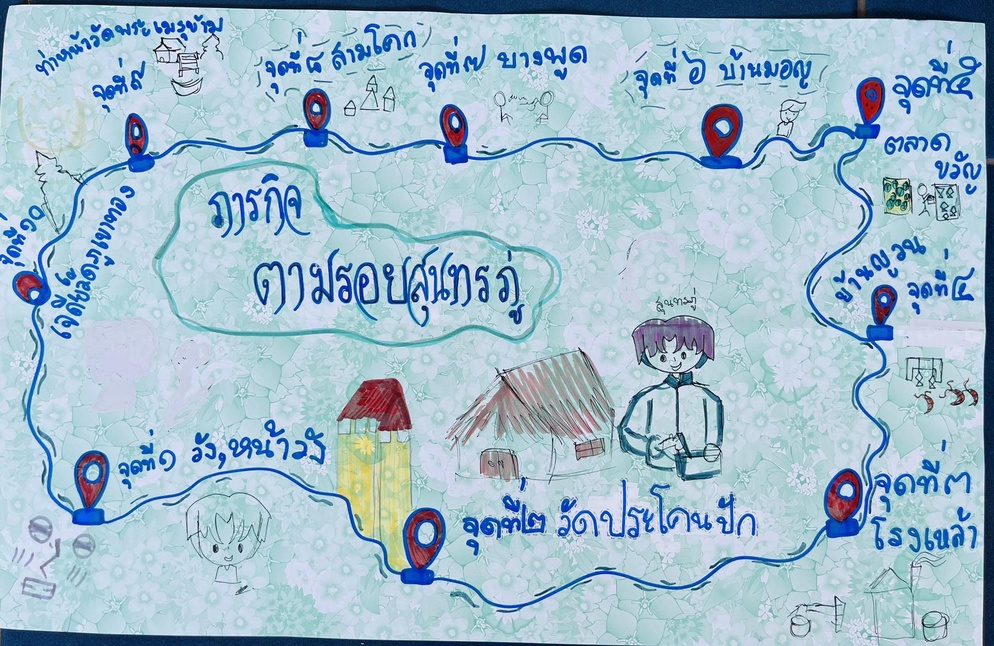 ภารกิจ
ตามรอยสุนทรภู่
สุนทรภู่
จุดที่๑ วัง,หน้าวัง
จุดที่๒ วัดประโคนปัก
จุดที่๓
โรงเหล้า
บ้านญวน
จุดที่๔
จุดที่๕
ตลาด
ขวัญ
จุดที่ ๖ บ้านมอญ
จุดที่๗ บางพูด
จุดที่๘ สามโคก
จุดที่๙
ท่าหน้าวัดพระเมรุข้าม
จุดที่๑๐
เจดีย์วัดภูเขาทอง